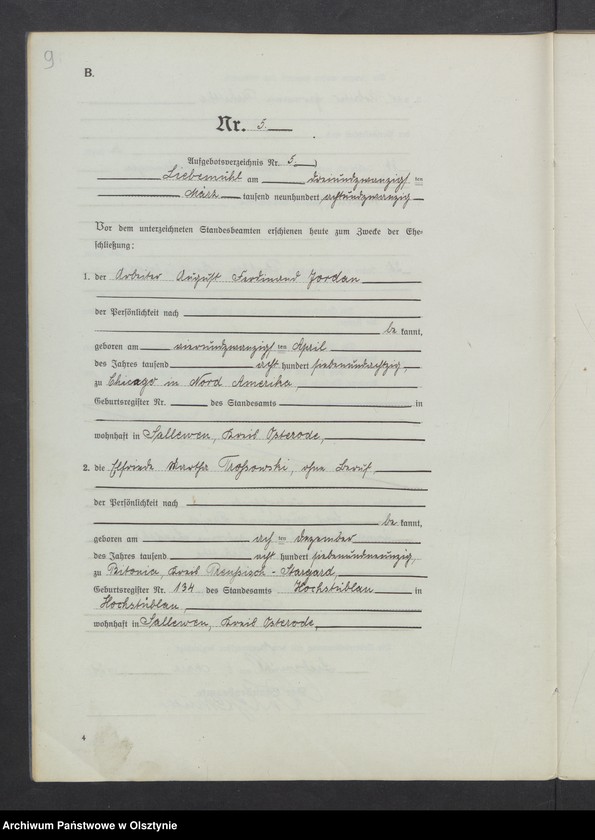 9
B.
Nr. 5.
Aufgebotsverzeichnis Nr. 5.
Liebemühl am dreiundzwanzigsten
März tausend neunhundert achtundzwanzig
Vor dem unterzeichneten Standesbeamten erschienen heute zum Zwecke der Ehe-
schließung:
1. der Arbeiter August Ferdinand Jordan
der Persönlichkeit nach
be kannt,
geboren am vierundzwanzigsten April
des Jahres tausend acht hundert siebenundachtzig,
zu Chicago in Nord Amerika,
Geburtsregister Nr. des Standesamts in
wohnhaft in Sallewen, Kreis Osterode,
2. die Elfriede Martha, ohne Beruf,
der Persönlichkeit nach
be kannt,
geboren am achten Dezember
des Jahres tausend acht hundert siebenundneunzig,
zu Bitonia, Kreis Preußisch-Stargard,
Geburtsregister Nr. 134 des Standesamts Hochstüblau in
Hochstüblau,
wohnhaft in Sallewen, Kreis Osterode,
4
Archiwum Państwowe w Olsztynie